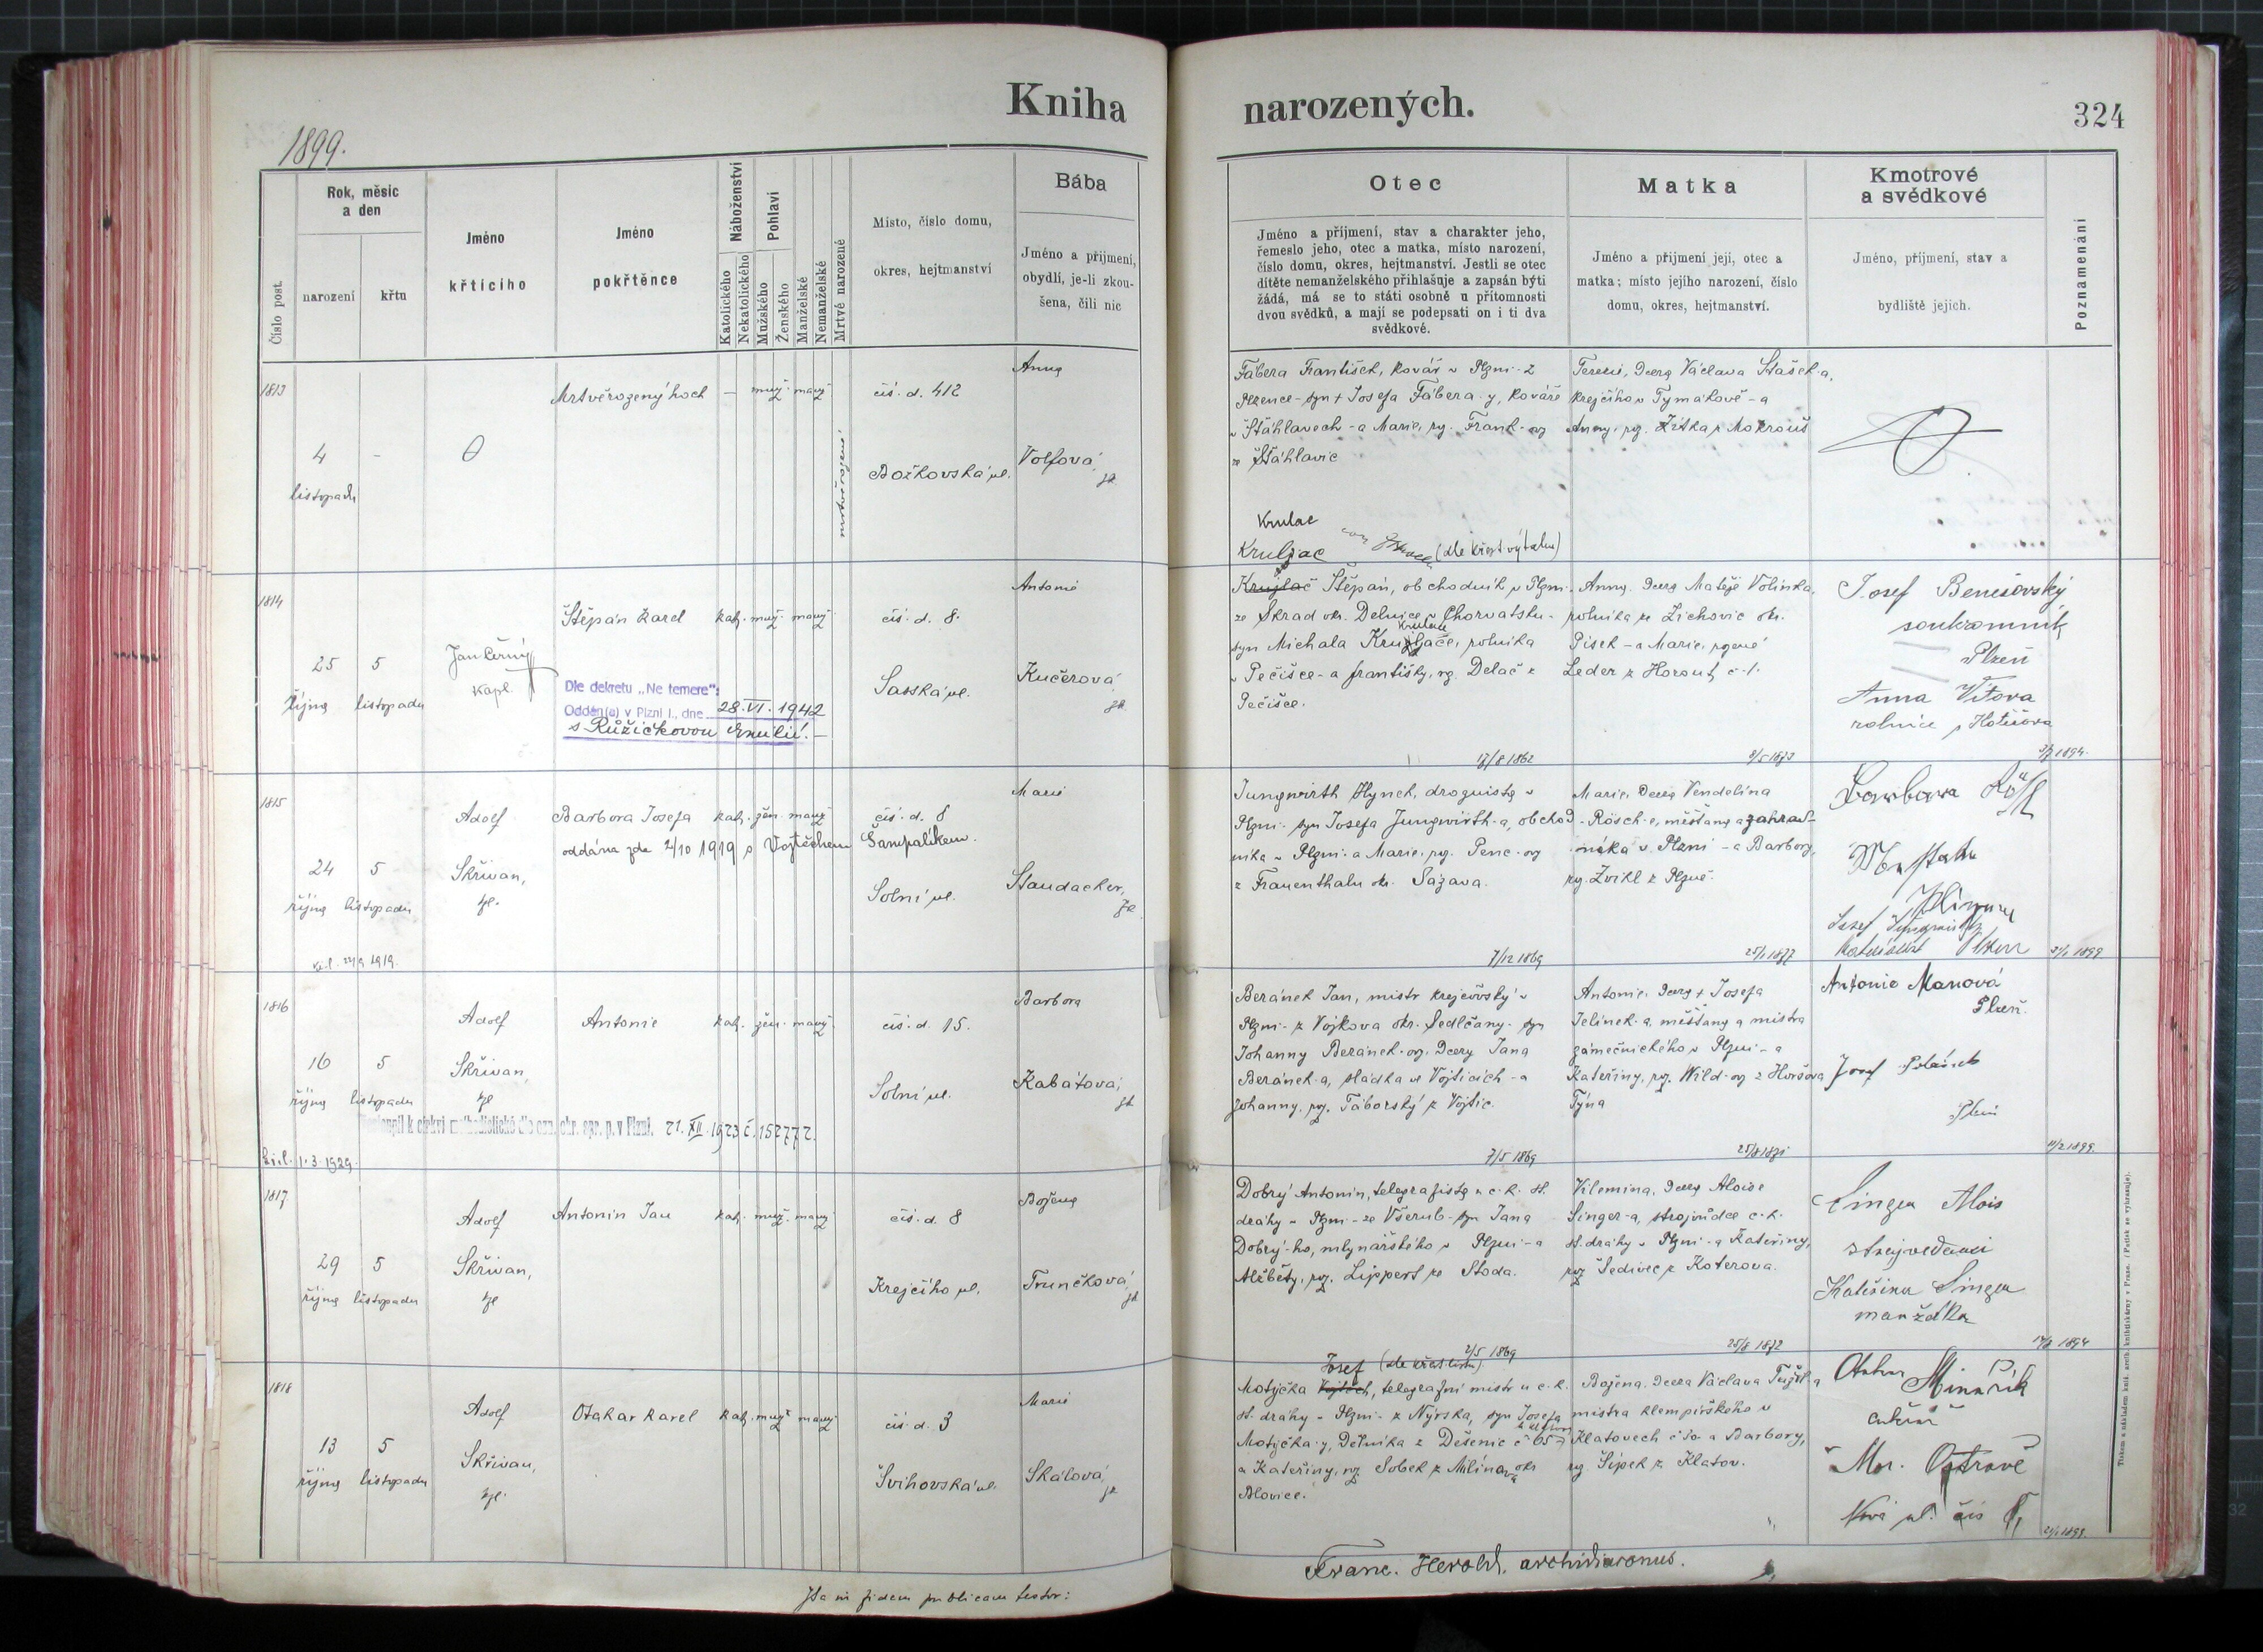 Kniha narozených.
324
1899.
Číslo post.
Rok, měsíc
a den
narození
křtu
Jméno
křtícího
Jméno
pokřtěnce
Náboženství
Katolického
Nekatolického
Pohlaví
Mužského
Ženského
Manželské
Nemanželské
Mrtvě narozené
Místo, číslo domu,
okres, hejtmanství
Bába
Jméno a příjmení,
obydlí, je-li zkou-
šena, čili nic
Otec
Jméno a příjmení, stav a charakter jeho,
řemeslo jeho, otec a matka, místo narození,
číslo domu, okres, hejtmanství. Jestli se otec
dítěte nemanželského přihlašuje a zapsán býti
žádá, má se to státi osobně u přítomnosti
dvou svědků, a mají se podepsati on i ti dva
svědkové.
Matka
Jméno a příjmení její, otec a
matka; místo jejího narození, číslo
domu, okres, hejtmanství.
Kmotrové
a svědkové
Jméno, příjmení, stav a
bydliště jejich.
Poznamenání
1813
4
listopadu
Mrtvěrozený hoch
muž. manž
mrtvěrozené
čís. d. 412
Božkovská ul.
Anna
Volfová,
zk
Fábera František, kovář v Plzni - z
Plzence - syn + Josefa Fábera-y, kováře
v Šťáhlavech - a Marie, roz. Frank-ov
ze Šťáhlavic
Terezie, dcera Václava Stašek-a,
krejčího v Tymákově - a
Anny, roz. Zítka z Mokrouš
Krulac
Kruljac (dle křest. výtahu)
1814
25
října
5
listopadu
Jan Černý
kapl.
Štěpán Karel
kat. muž. manž.
Dle dekretu „Ne temere":
Oddán(a) v Plzni I., dne 28. VI. 1942
s Růžičkovou Emilií.
čís. d. 8.
Saská ul.
Antonie
Kučerová,
zk
Štěpán, obchodník v Plzni -
ze Skrad okr. Delnice v Chorvatsku -
syn Michala rolníka
v Pečišce - a Františky, roz. Delač z
Pečišce.
17/8 1862
Anna, dcera Matěje Volínka,
rolníka ze Zichovic okr.
Písek - a Marie, rozené
Leder z
8/5 1873
Josef Benešovský
soukromník
Plzeň
Anna Vítova
1894.
1815
24
října
5
listopadu
Adolf
Skřivan,
kpl.
Barbora Josefa
kat. žen. manž
oddána zde 2/10 1919 s Vojtěchem Šampalíkem.
čís. d. 8
Solní ul.
Marie
Staudacher,
zk
1919.
Jungwirth Hynek, droguista v
Plzni - syn Josefa Jungwirth-a, obchod-
níka v Plzni - a Marie, roz. Penc-ov
z Frauenthalu okr. Sázava.
7/12 1869
Marie, dcera Vendelína
Rösch-e, měšťana a zahrad-
níka v Plzni - a Barbory,
roz. Zvikl z Plzně.
25/1 1877
Barbara
Josef
1899
1816
16
října
5
listopadu
Adolf
Skřivan,
kpl
Antonie
kat. žen. manž.
čís. d. 15.
Solní ul.
Barbora
Kabátová,
zk
21. XII. 1923 č. 152772.
1.3.1929.
Beránek Jan, mistr krejčovský v
Plzni - z Vojkova okr. Sedlčany - syn
Johanny Beránek-ov, dcery Jana
Beránek-a, sládka ve Vojticích - a
Johanny, roz. Táborský z Vojtic.
7/5 1869
Antonie, dcera + Josefa
Jelínek-a, měšťana a mistra
zámečnického v Plzni - a
Kateřiny, roz. Wild-ov z Horšova
Týna
25/8 1871
Antonie Manová
Plzeň.
Josef
Plzeň
11/2 1899.
1817
29
října
5
listopadu
Adolf
Skřivan,
kpl
Antonín Jan
kat. muž. manž
čís. d. 8
Krejčího ul.
Božena
Trunčková,
zk
Dobrý Antonín, telegrafista u c. k. st.
dráhy v Plzni - ze Všerub - syn Jana
Dobrý-ho, mlynářského v Plzni - a
Alžběty, roz. Lippert ze Stoda.
2/5 1869
Vilemina, dcera Aloise
Singer-a, strojvůdce c. k.
st. dráhy v Plzni - a Kateřiny,
roz. Šedivec z Koterova.
25/8 1872
Singer Alois
strojvedoucí
Kateřina Singer
manželka
1894
1818
13
října
5
listopadu
Adolf
Skřivan,
kpl.
Otakar Karel
kat. muž. manž
čís. d. 3
Švihovská ul.
Marie
Skálová,
zk
Josef (dle křest. listu)
Motyčka Vojtěch, telegrafní mistr u c. k.
st. dráhy v Plzni - z Nýrska, syn Josefa
Motyčka-y, dělníka z Dešenic č. 65
a Kateřiny, roz. Sobek z Milínova okr.
Blovice.
Božena, dcera Václava
mistra klempířského v
Klatovech č. a Barbory,
roz. Šípek z Klatov.
Otakar Minařík
Mor. Ostravě
Nová ul. čís
1898.
Ita in fidem publicam testor:
Franc. Herold, archidiaconus.